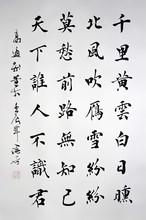 千里黃雲白日曛
北風吹雁雪紛紛
莫愁前路無知己
天下誰人不識君
高適別董大